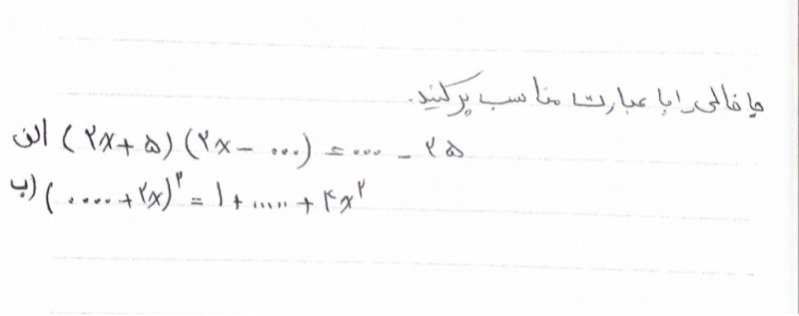 جا خالی را با عبارت مناسب پر کنید.
الف (۲x + ۵) (۲x - ...) = ... - ۲۵
ب) (.... + ۲x)^۲ = ۱ + ..... + ۴x^۲